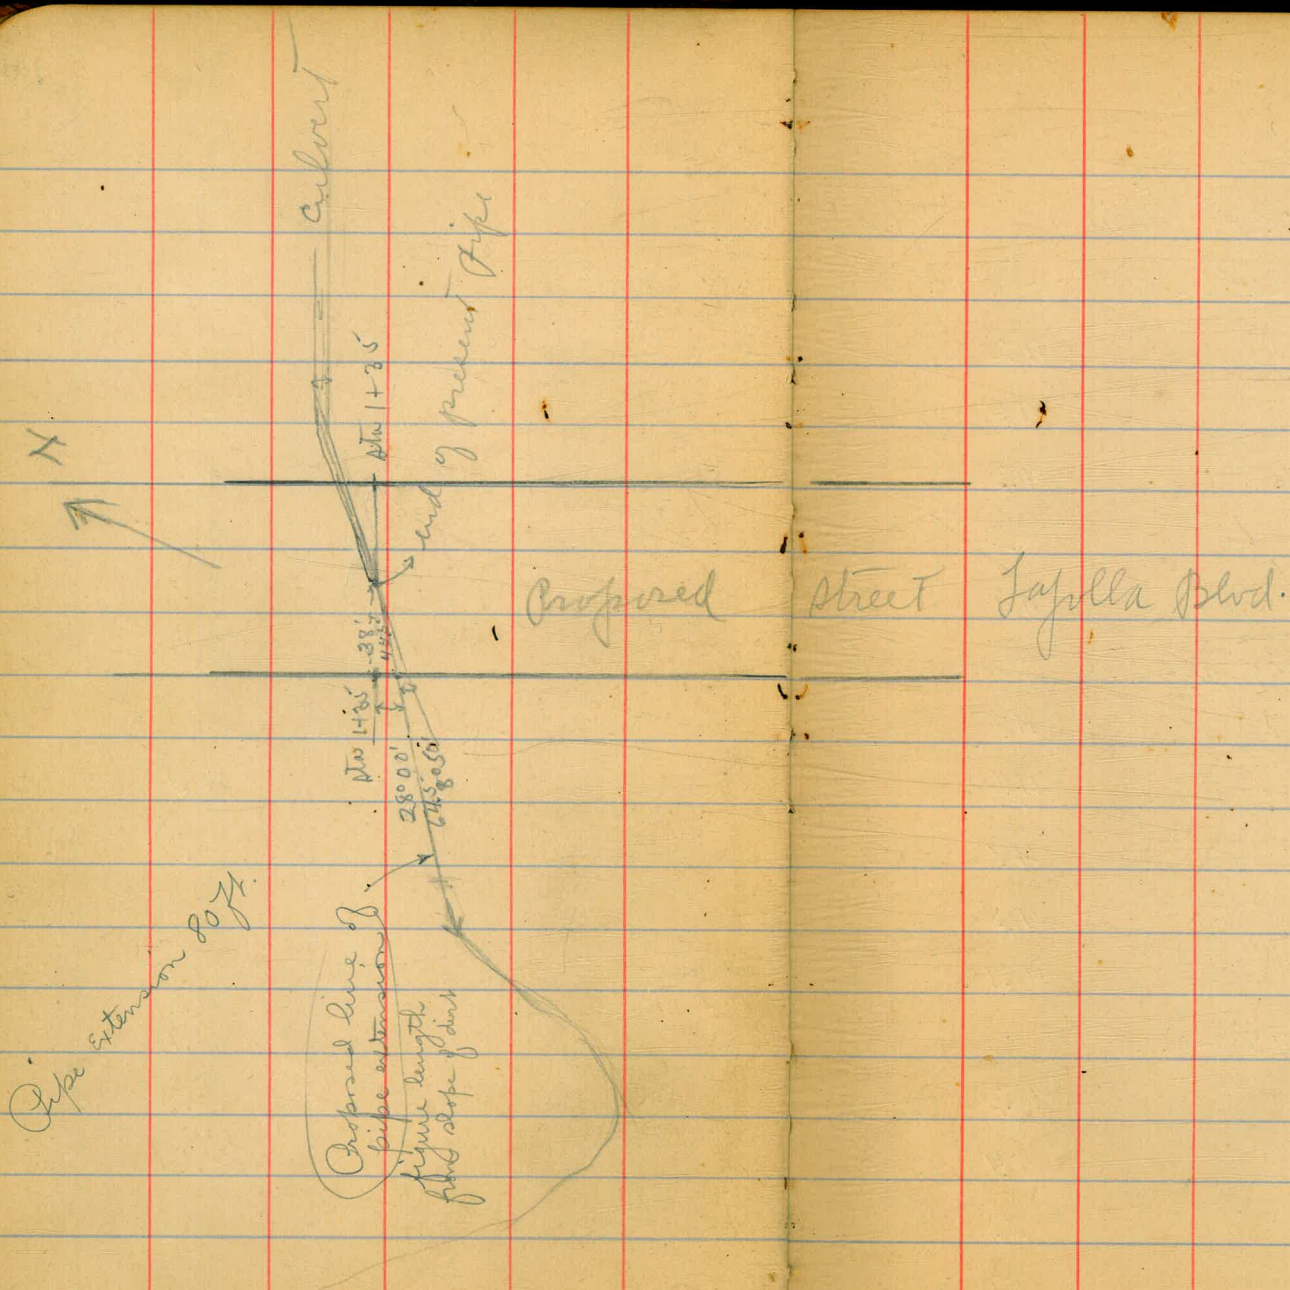 Culvert
end of present pipe
Sta 1+35
N
Proposed Street LaJolla Blvd.
38'
Sta 1+35
28°00'
8°50'
Pipe Extension 80 ft.
Proposed line of
pipe extension
figure length
from slope of dirt